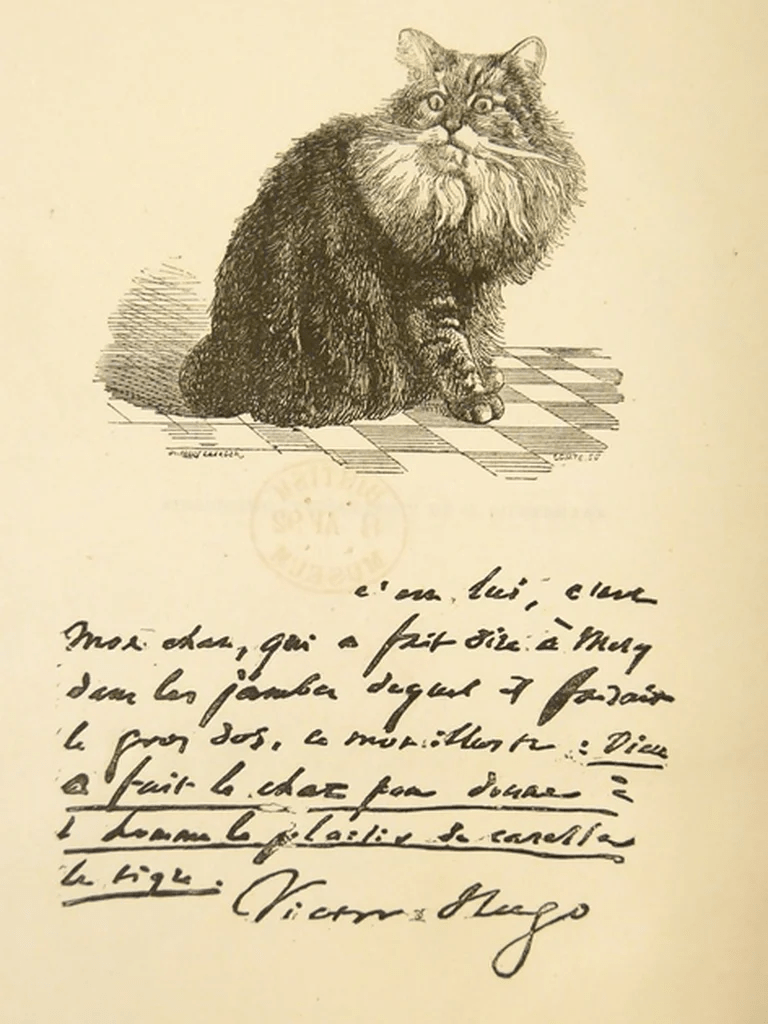 COMTE. SC
BRITISH
MUSEUM
c'est lui, c'est
mon chat, qui a fait dire à Mery
dans les jambes duquel il faisait
le gros dos, ce mot illustre : Dieu
a fait le chat pour donner à
l'homme le plaisir de caresser
le tigre.
Victor Hugo